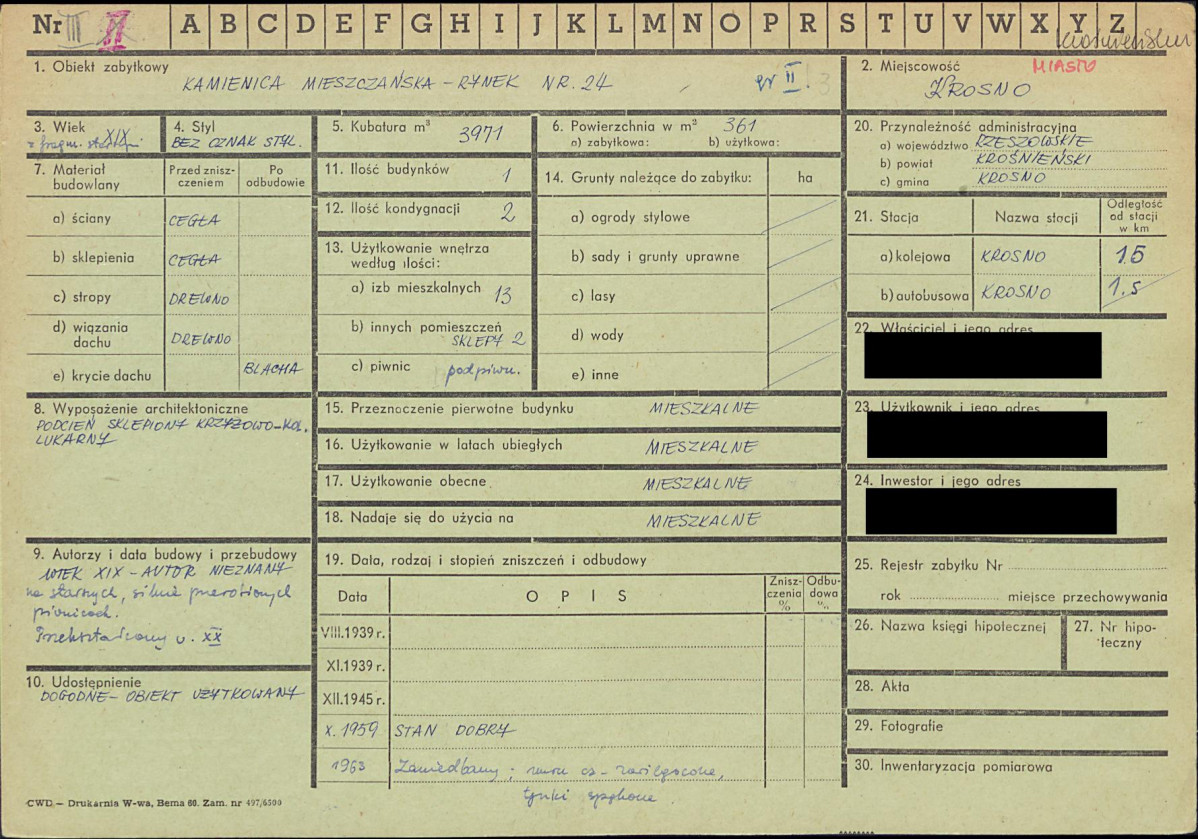 Nr III II A B C D E F G H I J K L M N O P R S T U V W X Y Z
1. Obiekt zabytkowy
KAMIENICA MIESZCZAŃSKA - RYNEK NR. 24
gr II! 3
2. Miejscowość MIASTO
KROSNO
3. Wiek XIX
z fragm. starszymi
4. Styl
BEZ OZNAK STYL.
5. Kubatura m³ 3971
6. Powierzchnia w m² 361
a) zabytkowa: b) użytkowa:
20. Przynależność administracyjna
a) województwo RZESZOWSKIE
b) powiat KROŚNIEŃSKI
c) gmina KROSNO
7. Materiał budowlany
Przed znisz-
czeniem
Po
odbudowie
a) ściany CEGŁA
b) sklepienia CEGŁA
c) stropy DREWNO
d) wiązania
dachu DREWNO
e) krycie dachu BLACHA
11. Ilość budynków 1
12. Ilość kondygnacji 2
13. Użytkowanie wnętrza
według ilości:
a) izb mieszkalnych 13
b) innych pomieszczeń
SKLEPY 2
c) piwnic podpiwn.
14. Grunty należące do zabytku: ha
a) ogrody stylowe
b) sady i grunty uprawne
c) lasy
d) wody
e) inne
21. Stacja Nazwa stacji
Odległość
od stacji
w km
a) kolejowa KROSNO 1.5
b) autobusowa KROSNO 1.5
22. Właściciel i jego adres
23. Użytkownik i jego adres
24. Inwestor i jego adres
8. Wyposażenie architektoniczne
PODCIEŃ SKLEPIONY KRZYŻOWO-KOL.
LUKARNY
15. Przeznoczenie pierwotne budynku MIESZKALNE
16. Użytkowanie w latach ubiegłych MIESZKALNE
17. Użytkowanie obecne MIESZKALNE
18. Nadaje się do użycia na MIESZKALNE
9. Autorzy i data budowy i przebudowy
WIEK XIX - AUTOR NIEZNANY
na starszych, silnie przerobionych
piwnicach.
Przekształcony w. XX
10. Udostępnienie
DOGODNE - OBIEKT UŻYTKOWANY
19. Data, rodzaj i stopień zniszczeń i odbudowy
Data OPIS
Znisz-
czenia
%
Odbu-
dowa
%
VIII.1939 r.
XI.1939 r.
XII.1945 r.
X. 1959 STAN DOBRY
1963 Zaniedbany; mury cz. zawilgocone,
tynki spękane.
25. Rejestr zabytku Nr
rok miejsce przechowywania
26. Nazwa księgi hipotecznej
27. Nr hipo-
teczny
28. Akta
29. Fotografie
30. Inwentaryzacja pomiarowa
CWD - Drukarnia W-wa, Bema 60. Zam. nr 497/6500